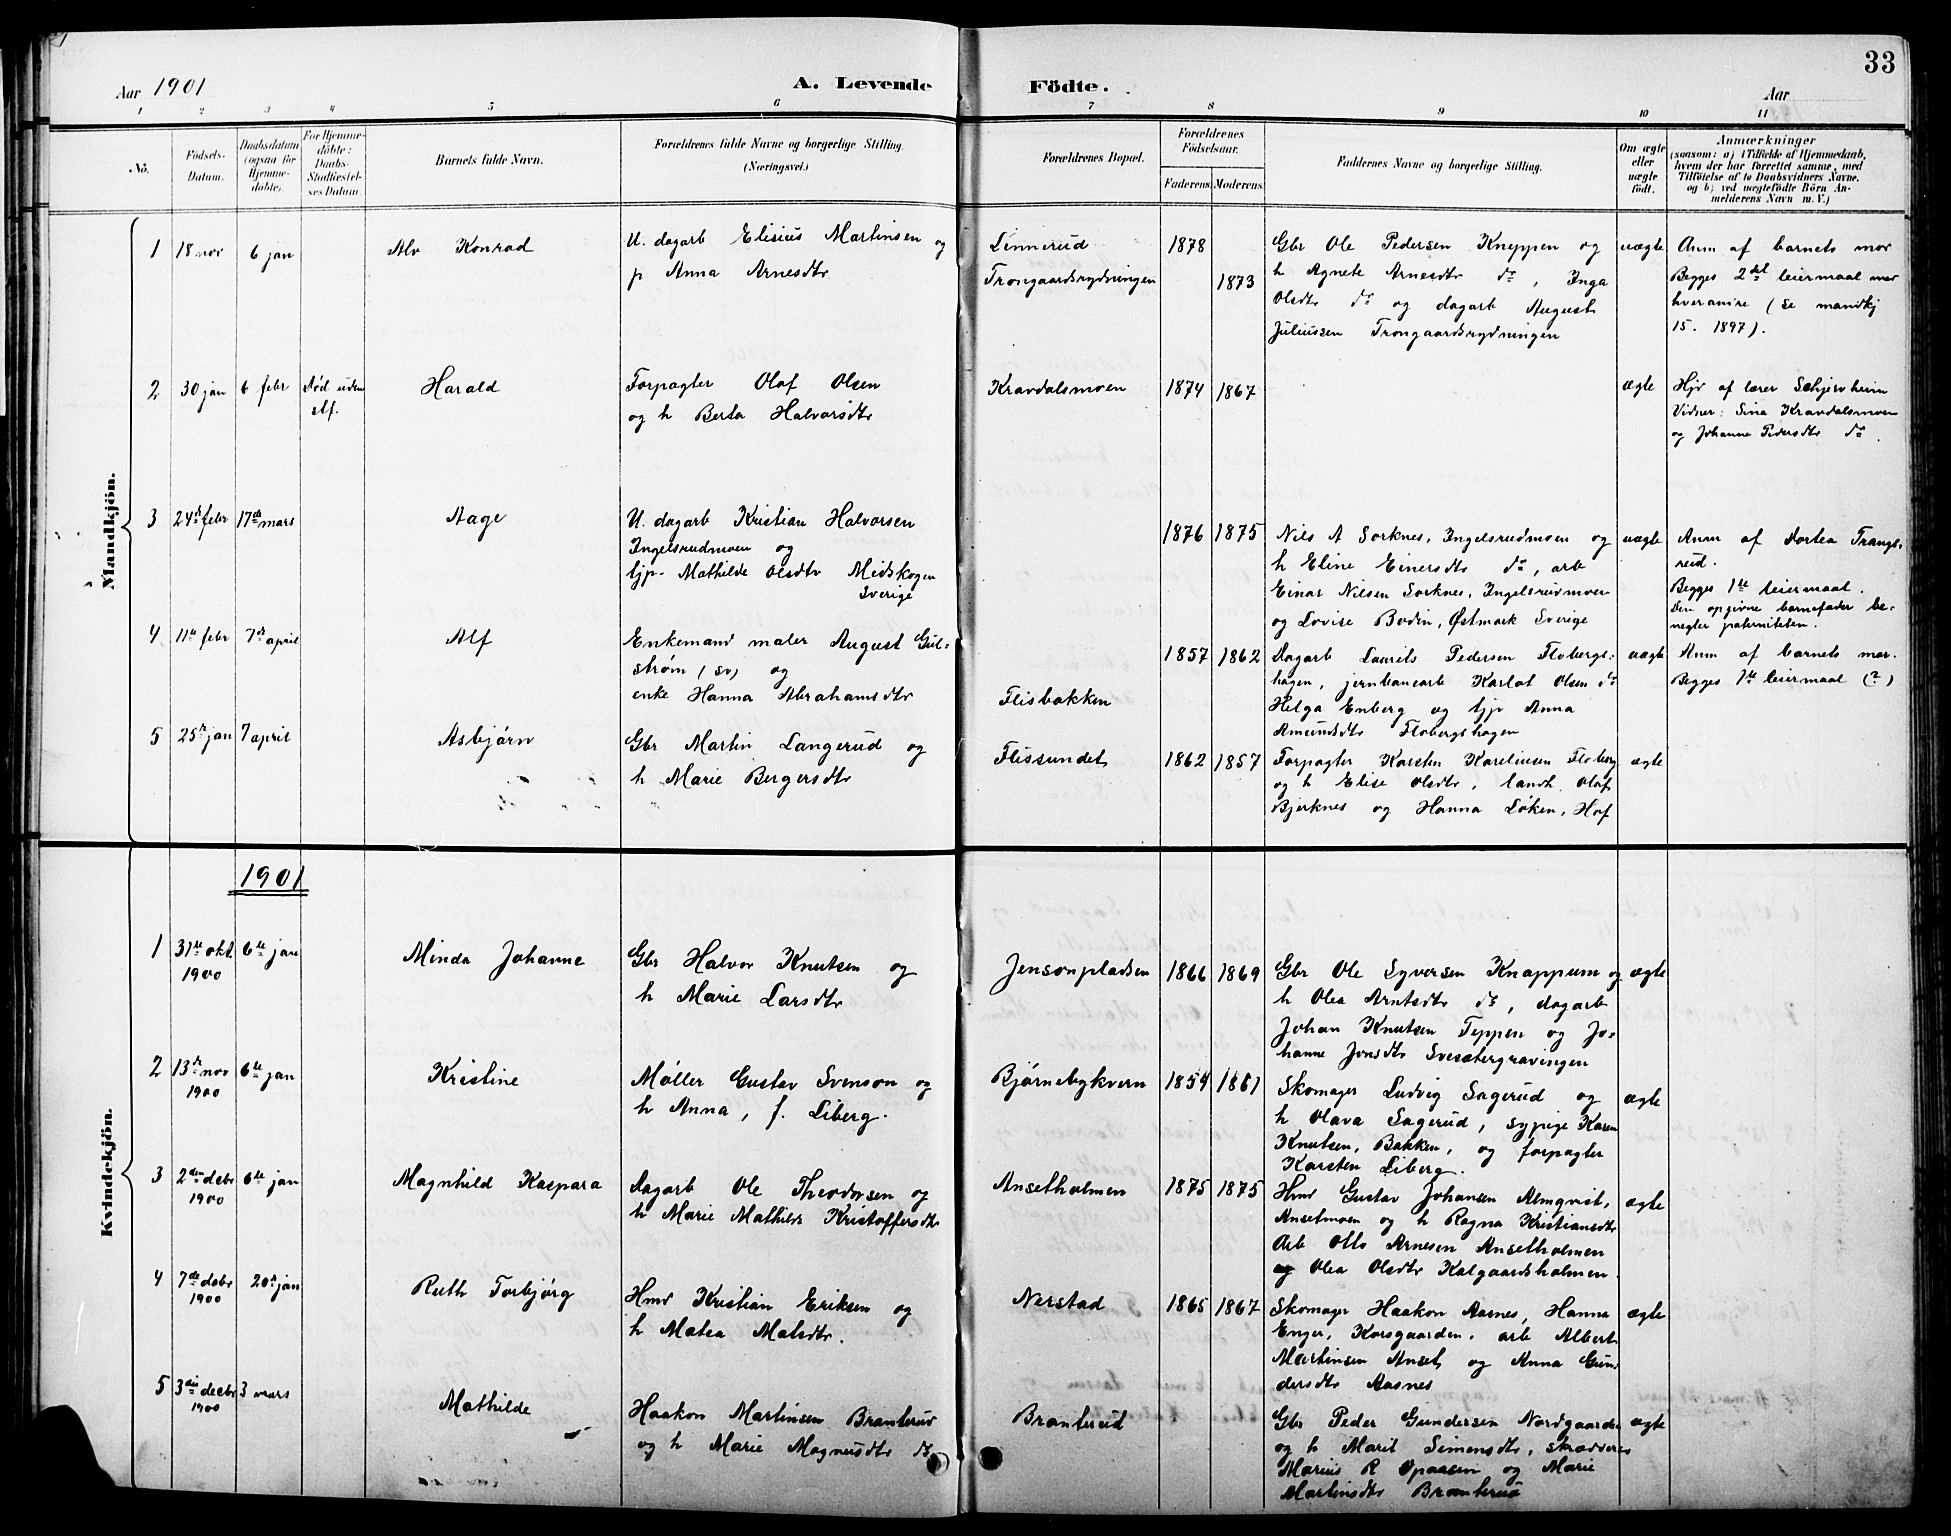 Aar 1901
A. Levende Födte.
33
Aar
1 2 3 4 5 6 7 8 9 10 11
No.
Födsels-Datum.
Daabsdatum (ogsaa for Hjemmedøbte).
For Hjemmedöbte: Daabs-Stadfæstelses Datum.
Barnets fulde Navn.
Forældrenes fulde Navne og borgerlige Stilling. (Næringsvei.)
Forældrenes Bopæl.
Forældrenes Födselsaar. Faderens Moderens
Faddernes Navne og borgerlige Stilling.
Om ægte eller uægte födt.
Anmærkninger
(saasom: a) i Tilfælde af Hjemmedaab, hvem der har forrettet samme, med Tilföielse af to Daabsvidners Navne, og b) ved uægtefödte Börn Anmelderens Navn m. V.)
Mandkjön.
1 18 nov 6 jan Alv Konrad
U. dagarb Elisius Martinsen og
p Anna Arnesdtr
Linnerud
Trongaardsrydningen
1878
1873
Gbr Ole Pedersen Kneppen og
h Agnete Arnesdtr do, Inga
Olsdtr do og dagarb August
Juliussen Trongaardsrydningen
uægte
Anm af barnets mor
Begges 2det leiermaal med
hverandre (Se mandkj
15. 1897).
2 30 jan 6 febr Død uden stf. Harald
Forpagter Olaf Olsen
og h Berta Halvorsdtr
Kravdalsmoen
1874 1867
ægte
Hjd af lærer Schjerveheim
Vidner: Sina Kravdalsmoen
og Johanne Pedersdtr do.
3 24de febr 17de mars Aage
U. dagarb Kristian Halvorsen
Ingelsrudmoen og
tjp. Mathilde Olsdtr Midskogen
Sverige
1876 1875
Nils A Sorknes, Ingelsrudmoen og
h Eline Einersdtr do, arb
Einar Nilsen Sorknes, Ingelsrudmoen
og Lovise Bodin, Østmark Sverige
uægte
Anm af Dortea Trangs-
rud.
Begges 1ste leiermaal.
Den opgivne barnefader be-
negter paterniteten.
4 11te febr 7de april Alf
Enkemand maler August Gul-
strøm (sv) og
enke Hanna Abrahamsdtr
Flisbakken
1857 1862
Dagarb Laurits Pedersen Flobergs-
hagen, jernbanearb Karlot Olsen do
Helga Enberg og tjp Anna
Amundsdtr Flobergshagen
uægte
Anm af barnets mor.
Begges 1ste leiermaal (?)
5 25de jan 7 april Asbjørn
Gbr Martin Langerud og
h Marie Bergersdtr
Flissundet
1862 1857
Forpagter Karsten Karelinsen Floberg
og h Elise Olsdtr, landh. Olaf
Bjerknes og Hanna Løken, Hof
ægte
1901
Kvindekjön.
1 31te okt 1900 6te jan Minda Johanne
Gbr Halvor Knutsen og
h Marie Larsdtr
Jensonpladsen
1866 1869
Gbr Ole Syversen Knappum og
h Olea Arntsdtr do, dagarb
Johan Knutsen Teppen og Jo-
hanne Jonsdtr Svesætergravingen
ægte
2 13de nov 1900 6te jan Kristine
Møller Gustav Svenson og
h Anna, f. Liberg.
Bjørnebykvern
1854 1861
Skomager Ludvig Sagerud og
h Olava Sagerud, sypige Karen
Knutsen, Bakken, og forpagter
Karsten Liberg.
ægte
3 2den debr 1900 6te jan Magnhild Kaspara
Dagarb Ole Theodorsen og
h Marie Mathilde Kristoffersdtr
Anseth0lmen
1875 1875
Hmd Gustav Johansen Almqvist,
Ansetmoen og h Ragna Kristiansdtr
Arb Otto Arnesen Ansetholmen
og Olea Olsdtr Kalgaardsholmen.
ægte
4 7de debr 1900 20de jan Ruth Torbjørg
Hmd Kristian Eriksen og
h Matea Matsdtr.
Nerstad
1865 1867
Skomager Haakon Aasnes, Hanna
Enger, Korsgaarden, arb Albert
Martinsen Anset og Anna Gun-
dersdtr Aasnes
ægte
5 3die decbr 1900 3 mars Mathilde
Haakon Martinsen Branterud
og h Marie Magnusdtr do
Branterud
Gbr Peder Gundersen Nordgaarden
og h Marit Simensdtr, skrædder
Marius R Opaasen og Marie
Martinsdtr Branterud
ægte